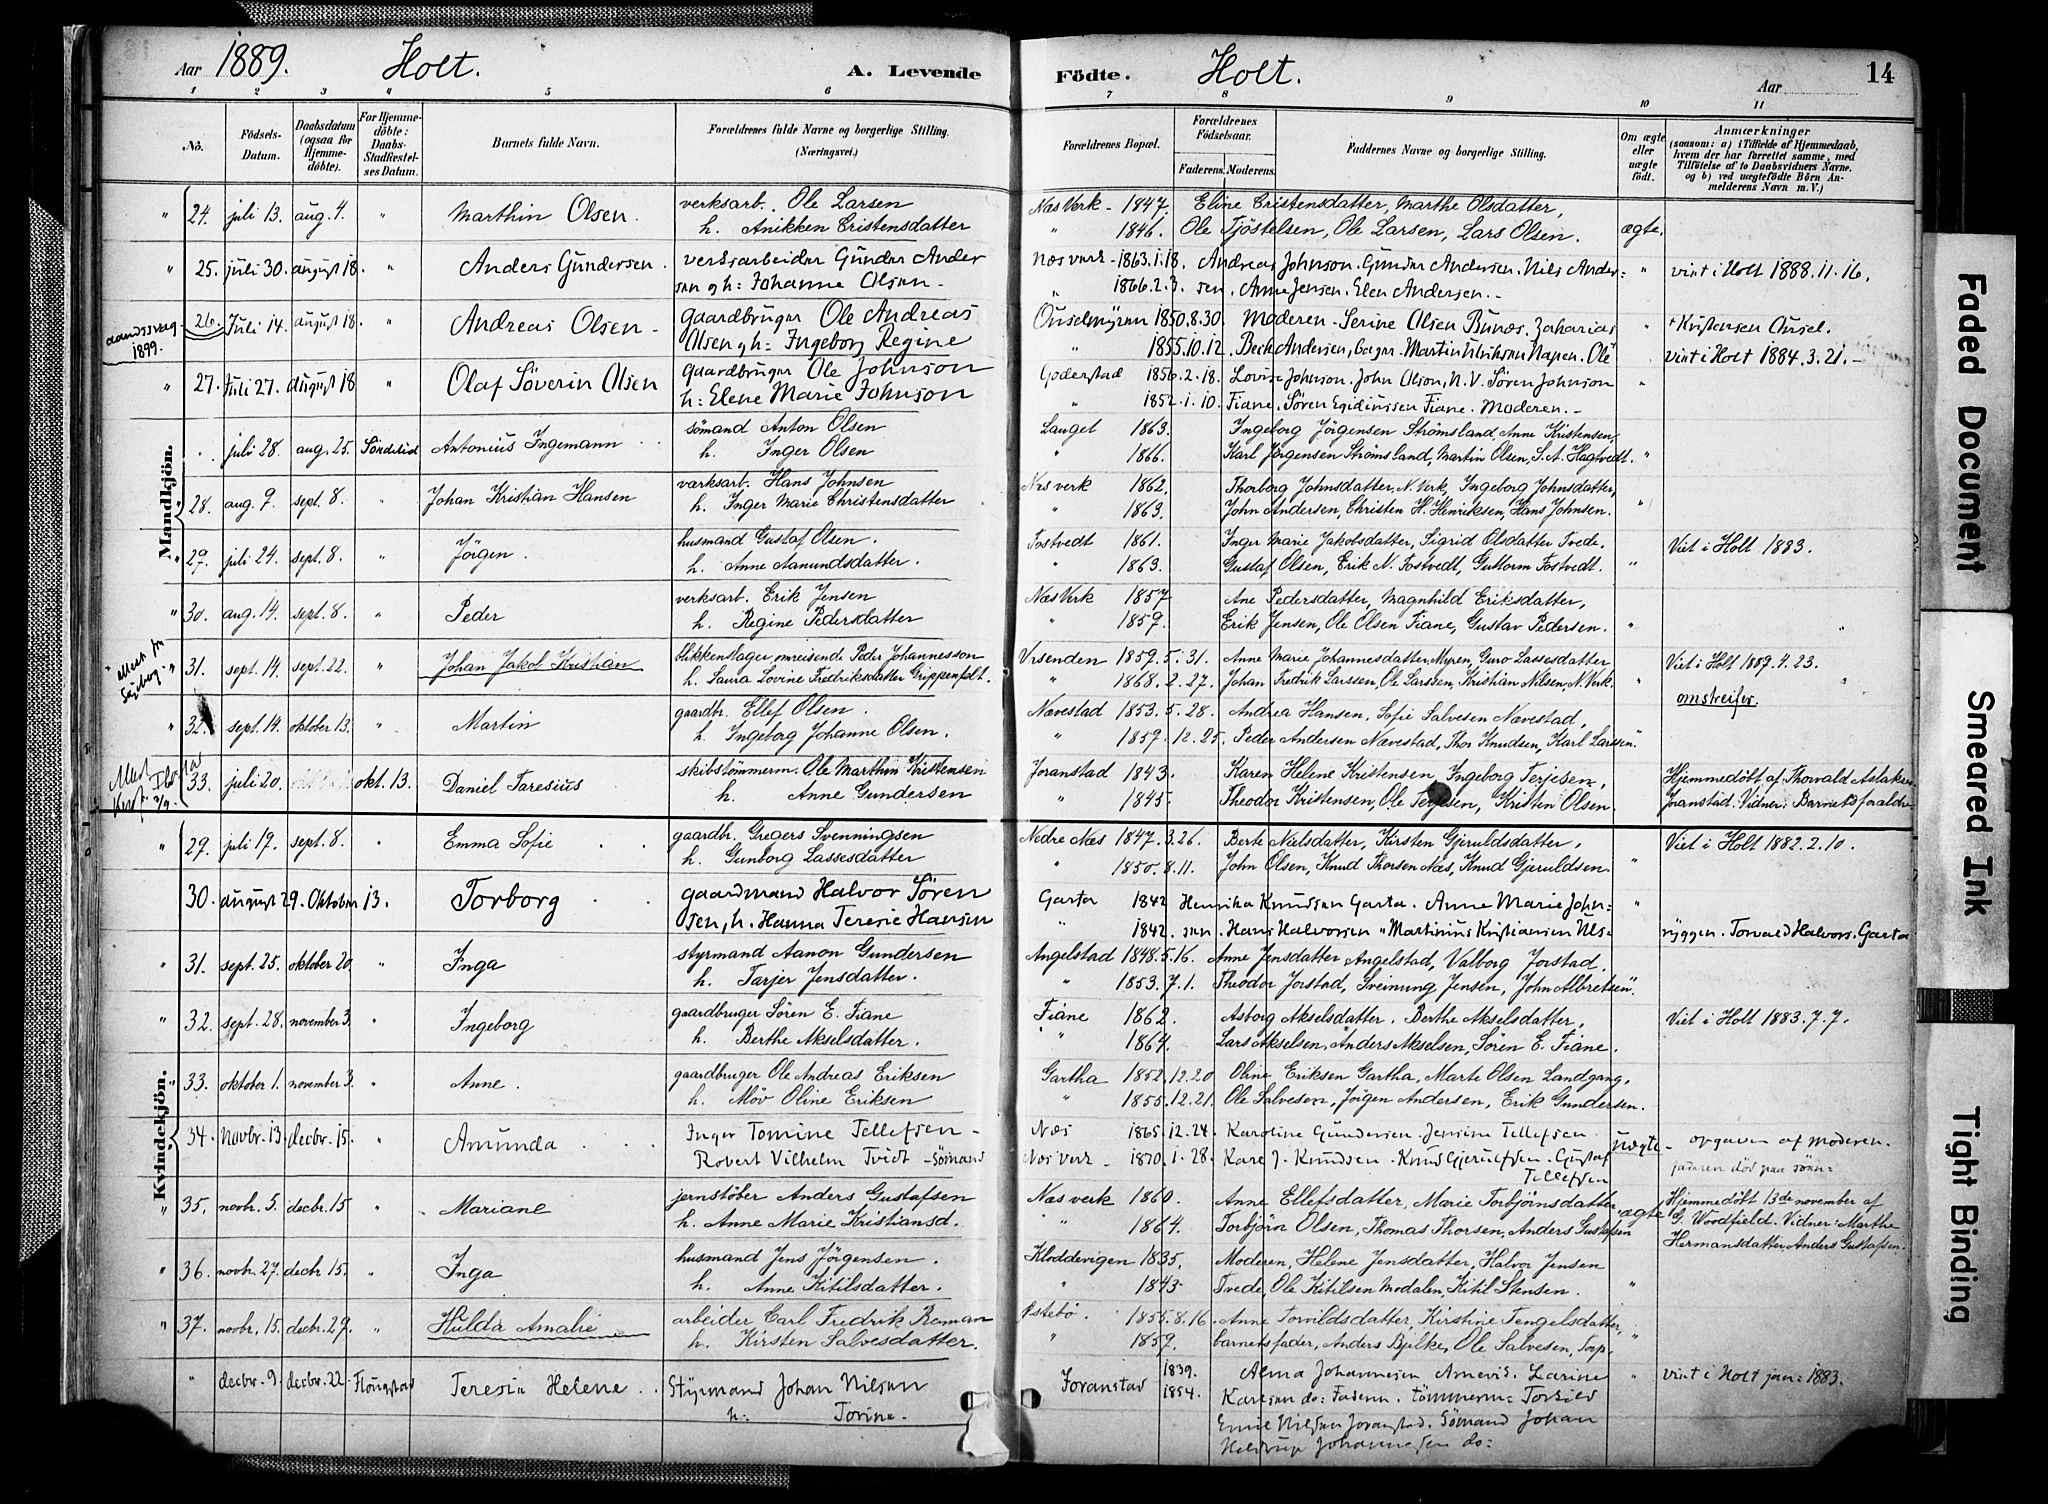 Aar 1889. Holt. A. Levende Födte. Holt. Aar 14
1 2 3 4 5 6 7 8 9 10 11
No. Födsels-Datum. Daabsdatum (ogsaa for Hjemmedöbte). For Hjemmedöbte: Daabs-Stadfæstelses Datum. Barnets fulde Navn. Forældrenes fulde Navne og borgerlige Stilling. (Næringsvei.) Forældrenes Bopæl. Forældrenes Födselsaar. Faderens. Moderens. Faddernes Navne og borgerlige Stilling. Om ægte eller uægte födt. Anmærkninger (saasom: a) i Tilfælde af Hjemmedaab, hvem der har forrettet samme, med Tilföielse af to Daabsvidners Navne, og b) ved uægtefödte Börn Anmelderens Navn m. V.)
Mandkjön.
" 24. juli 13. aug. 4. " Marthin Olsen. verksarb. Ole Larsen Næs Verk - 1847. Eline Cristensdatter, Marthe Olsdatter,
h. Anikken Cristensdatter " 1846. Ole Tjöstelsen, Ole Larsen, Lars Olsen. ægte.
" 25. juli 30. august 18. " Anders Gundersen. verksarbeider Gunder Ander Næs verk - 1863.1.18. Andreas Johnson. Gunder Andersen. Nils Ander= " viet i Holt 1888.11.16.
sen og h: Johanne Olsen - " 1866.2.3. sen. Anne Jensen. Elen Andersen. -
aandssvag 1899. 26. Juli 14. august 18. " Andreas Olsen - gaardbruger Ole Andreas 1850.8.30. Moderen - Serine Olsen Bunæs. Zacharias " + Kristensen Ausel.
Olsen og h: Ingeborg Regine " 1855.10.12. Beck Andersen, Martin Ulriksen Napen. Ole viet i Holt 1884.3.21. -
" 27. Juli 27. august 18 " Olaf Söverin Olsen gaardbruger Ole Johnson Goderstad 1856.2.18. Lovise Johnson. John Olson, N. V. Sören Johnson "
h: Elene Marie Johnson " 1852.1.10. Fiane. Sören Egidiussen Fiane. Moderen. -
" juli 28. aug. 25. Söndeled Antonius Ingemann sömand Anton Olsen Lauget 1863. Ingeborg Jörgensen Strömsland, Anne Kristensen,
h. Inger Olsen " 1866. Karl Jörgensen Strömsland, Martin Olsen, S. A. Hagtvedt. "
28. aug. 9. sept. 8. " Johan Kristian Hansen verksarb. Hans Johnsen Næs verk 1862. Thorborg Johnsdatter, N. Verk, Ingeborg Johnsdatter,
h. Inger Marie Christensdatter " 1863. John Andersen, Christen H. Henriksen, Hans Johnsen. "
29. juli 24. sept. 8. " Jörgen. husmand Gustaf Olsen. Fostvedt 1861. Inger Marie Jakobsdatter, Sigrid Olsdatter Tvede. Viet i Holt 1883.
h. Anne Aanundsdatter. " 1863. Gustaf Olsen, Erik N. Fostvedt, Guttorm Fostvedt. "
" 30. aug. 14. sept. 8. " Peder verksarb. Erik Jensen Næs Verk 1857 Ane Pedersdatter, Magnhild Eriksdatter,
h. Regine Pedersdatter " 1859. Erik Jensen, Ole Olsen Fiane, Gustav Pedersen. "
" 31. sept. 14. sept. 22. " Johan Jakob Kristian blikkenslager, omreisende Peder Johannesson Ursenden 1859.5.31. Anne Marie Johannesdatter, Myren, Guro Lassesdatter, Viet i Holt 1887.4.23.
h. Laura Lovine Fredriksdatter Grippenfeldt. " 1868.2.27. Johan Fredrik Larssen, Ole Larssen, Kristian Nilsen, N. Verk. " omstreifer.
" 32. sept. 14. oktober 13. " Martin gaardbr. Ellef Olsen. Nævestad 1853.5.28. Andrea Hansen, Sofie Salvesen Nævestad,
h. Ingeborg Johanne Olsen. " 1859.12.25. Peder Andersen Nævestad, Thor Knudsen, Karl Larssen. "
33. juli 20. okt. 13. Daniel Taresius skibstömmerm. Ole Marthin Kristensen Joranstad 1843. Karen Helene Kristensen, Ingeborg Terjesen, Hjemmedöbt af Thorvald Aslaksen
h. Anne Gundersen " 1845. Theodor Kristensen, Ole Terjesen, Kristen Olsen. Joranstad. Vidner: Barnets forældre
Kvindekjön.
" 29. juli 17. sept. 8. " Emma Sofie gaardbr. Gregers Svenningsen Nedre Næs 1847.3.26. Berte Nielsdatter, Kirsten Gjeruldsdatter, Viet i Holt 1882.2.10.
h. Gunborg Lassesdatter " 1850.8.11. John Olsen, Knud Thorsen Næs, Knud Gjeruldsen. "
30. august 29. Oktober 13. Torborg gaardmand Halvor Sören Garta 1842 Henrika Knudsen Garta. Anne Marie John= "
sen, h. Hanna Teresie Hansen " 1842. sen. Hans Halvorsen " Martinius Kristiansen Uls= ryggen. Torvald Halvors. Garta
" 31. sept. 25. oktober 20. " Inga styrmand Aanon Gundersen Angelstad 1848.5.16. Anne Jensdatter Angelstad, Valborg Jorstad.
h. Tarjer Jensdatter. " 1853.7.1. Theodor Jorstad, Sveinung Jensen, John Albretsen. "
" 32. sept. 28. november 3. " Ingeborg gaardbruger Sören E. Fiane Fiane 1862. Asborg Akselsdatter. Berthe Akselsdatter, Viet i Holt 1883.7.7.
h. Berthe Akselsdatter. " 1864. Lars Akselsen, Anders Akselsen, Sören E. Fiane.
33. oktober 1. november 3. " Anne. gaardbruger Ole Andreas Eriksen Gartha 1852.12.20 Oline Eriksen Gartha, Marte Olsen Landgang,
h. Möv Oline Eriksen " 1855.12.21. Ole Salvesen, Jörgen Andersen, Erik Gundersen.
34. Novbr. 13. decbr. 15. " Amunda Inger Tomine Tellefsen - Næs 1865.12.24. Karoline Gundersen. Jensine Tellefsen. uægte - opgaven af moderen.
Robert Vilhelm Tvidt - Sömand Næs Verk - 1870.1.28. Kare J. Knudsen. Knud Gjerulfsen. Gustaf Tellefsen faderen död paa sjöen=
" 35. novbr. 5. decbr. 15 " Mariane jernstöber Anders Gustafsen Næs verk 1860. Anne Ellefsdatter, Marie Torbjörnsdatter ægte Hjemmedöbt 13de november af
h. Anne Marie Kristiansd. " 1864. Torbjörn Olsen, Thomas Thorsen, Anders Gustafsen G. Woodfield. Vidner: Marthe
Hermansdatter, Anders Gustafsen.
" 36. novbr. 27. decbr 15. " Inga husmand Jens Jörgensen. Kloddevigen 1835. Moderen, Helene Jensdatter, Halvor Jensen
h. Anne Kitilsdatter. " 1843 Tvede, Ole Kitilsen Modalen, Kitil Stensen. "
" 37. novbr. 15. decbr. 29. " Hulda Amalie arbeider Carl Fredrik Reman Østebö. 1855.8.16. Anne Torvildsdatter, Kirstine Tengelsdatter,
h. Kirsten Salvesdatter. " 1859. barnets fader, Anders Bjelke, Ole Salvesen, Torp. "
" decbr. 9. decbr. 22. Teresia Helene. Styrmand Johan Nilsen Joranstad 1839. Alma Johannesen Larine " viet i Holt jan: 1883.
h: Torine. 1854. Karlsen do: Faderen. tömmerm: Torkild
Emil Nilsen Joranstad. Sömand Johan
Johannesen do:
Faded Document
Smeared Ink
Tight Binding